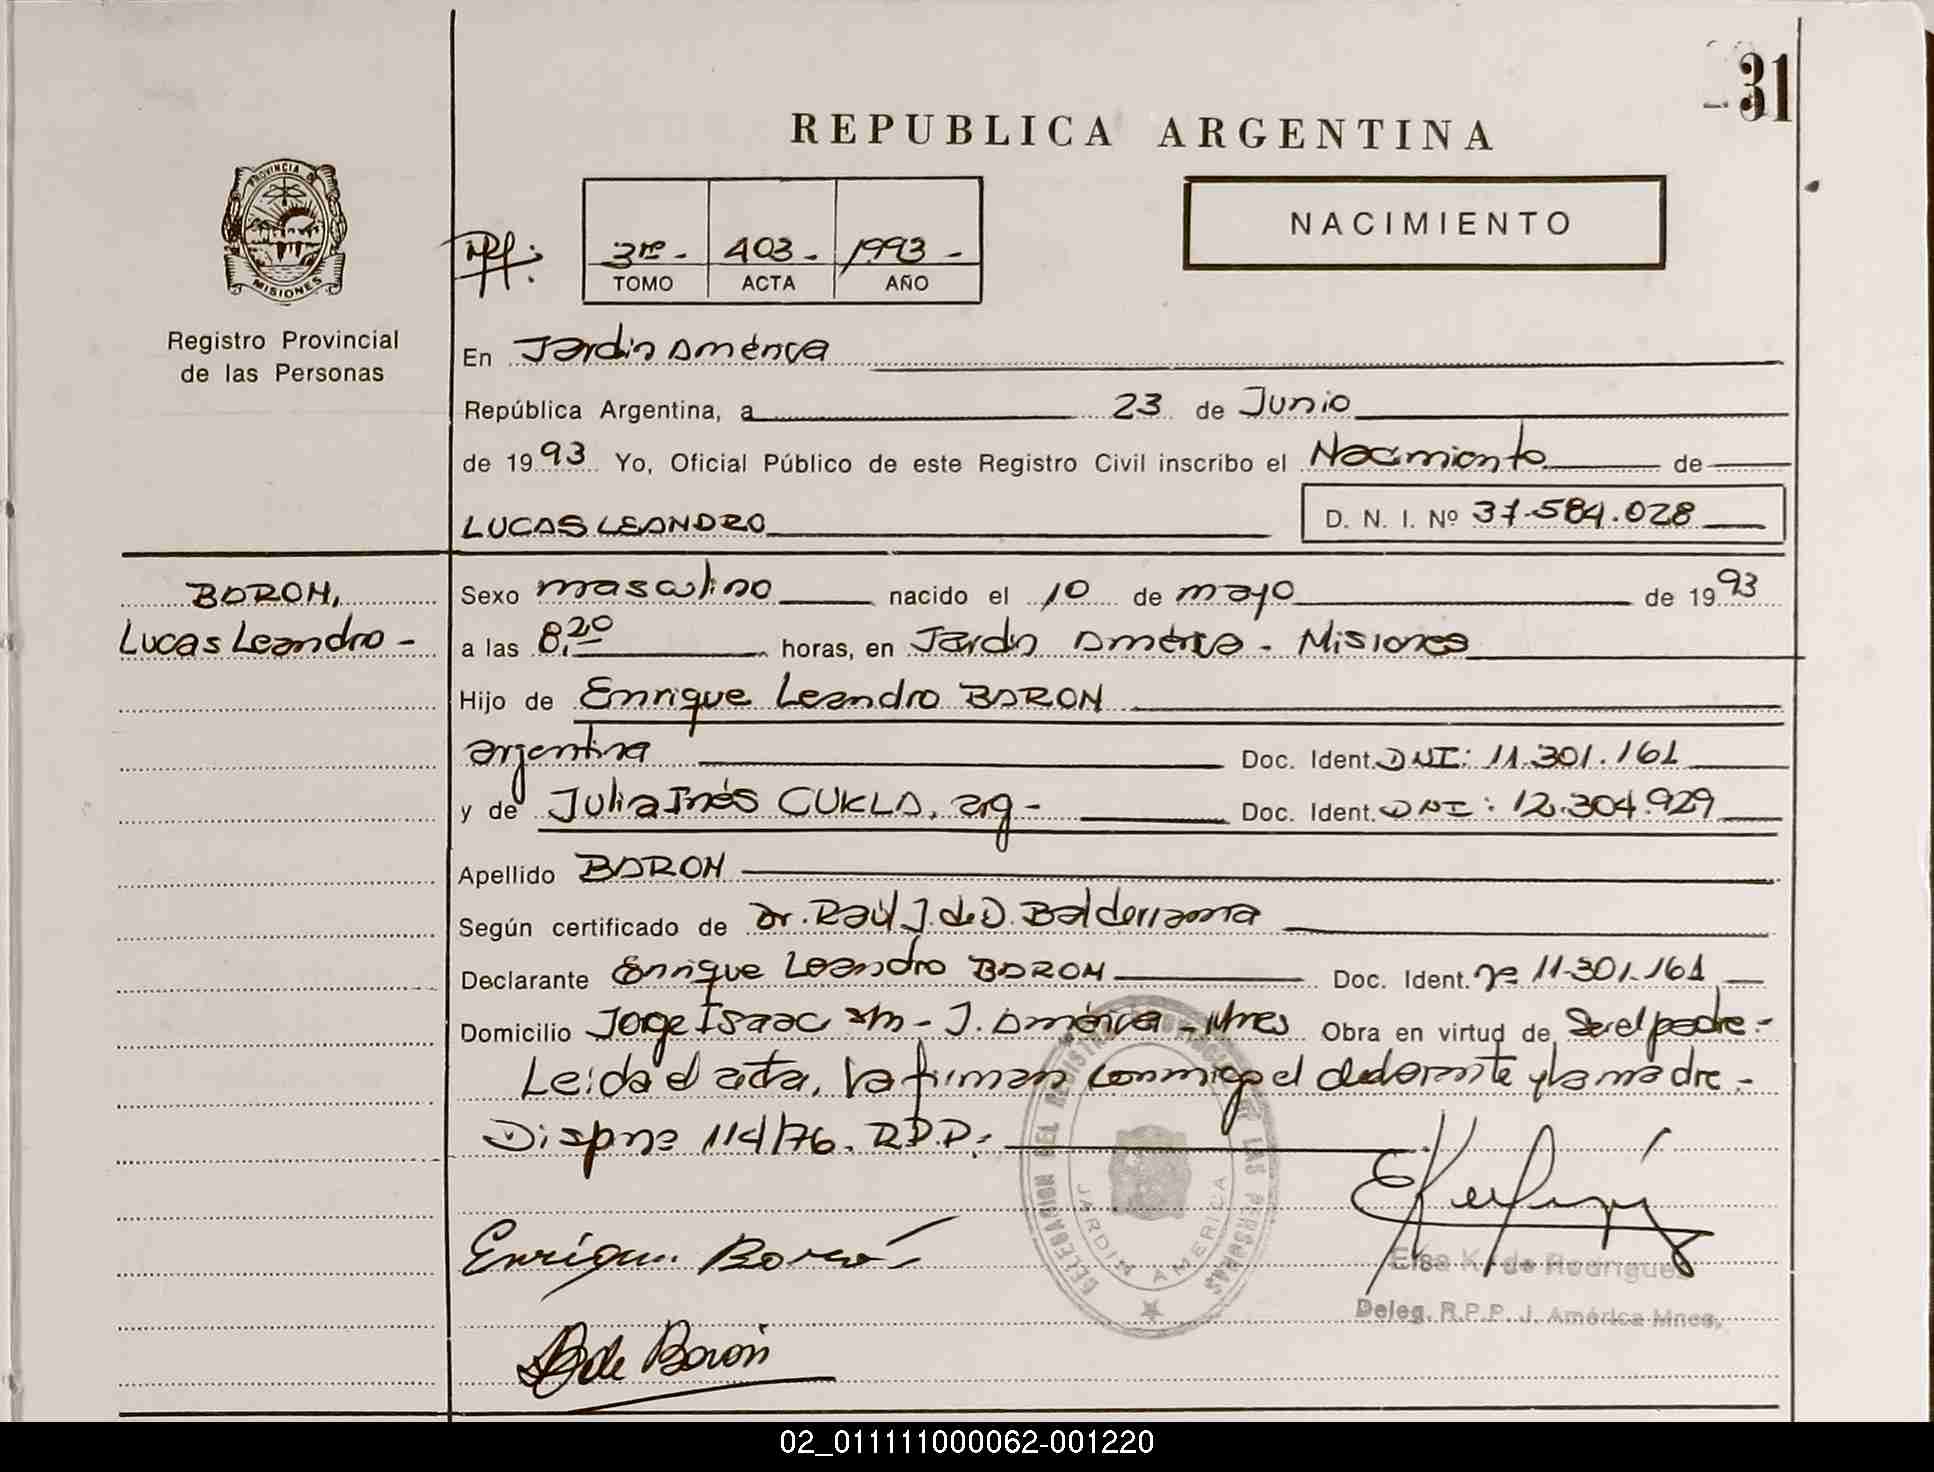 31
REPUBLICA ARGENTINA
PROVINCIA DE MISIONES
NACIMIENTO
3ro - 403 - 1993 -
TOMO ACTA AÑO
Registro Provincial
de las Personas
En Jardín América
República Argentina, a 23 de Junio
de 1993 Yo, Oficial Público de este Registro Civil inscribo el Nacimiento de
LUCAS LEANDRO D. N. I. Nº 37.584.028
BORON,
Lucas Leandro -
Sexo masculino nacido el 10 de mayo de 1993
a las 8,20 horas, en Jardín América - Misiones
Hijo de Enrique Leandro BORON
argentina Doc. Ident. DNI: 11.301.161
y de Julia Inés CUKLA, arg - Doc. Ident. DNI: 12.304.929
Apellido BORON
Según certificado de Dr. Raúl J. de D. Balderrama
Declarante Enrique Leandro BORON Doc. Ident. Nº 11.301.161
Domicilio Jorge Isaac s/n - J. América - Mnes Obra en virtud de Ser el padre -
Leída el acta, la firman conmigo el declarante y la madre -
Dispne 114/76. R.P.P.
DELEGACION DEL REGISTRO PROVINCIAL DE LAS PERSONAS
JARDIN AMERICA
Enrique Boron
de Boron
Elsa K. de Rodrigues
Deleg. R.P.P. J. América Mnes.
02_011111000062-001220